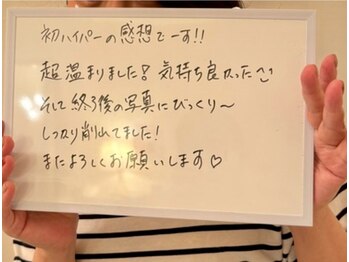 初ハイパーの感想でーす!!
超温まりました！気持ち良かった^^
そして終了後の写真にびっくり〜
しっかり削れてました！
またよろしくお願いします♡